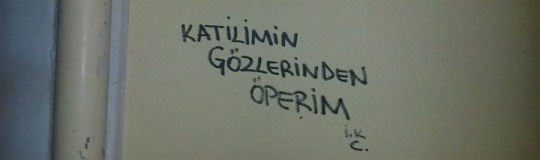 KATİLİMİN
GÖZLERİNDEN
ÖPERİM
İ.K
C.